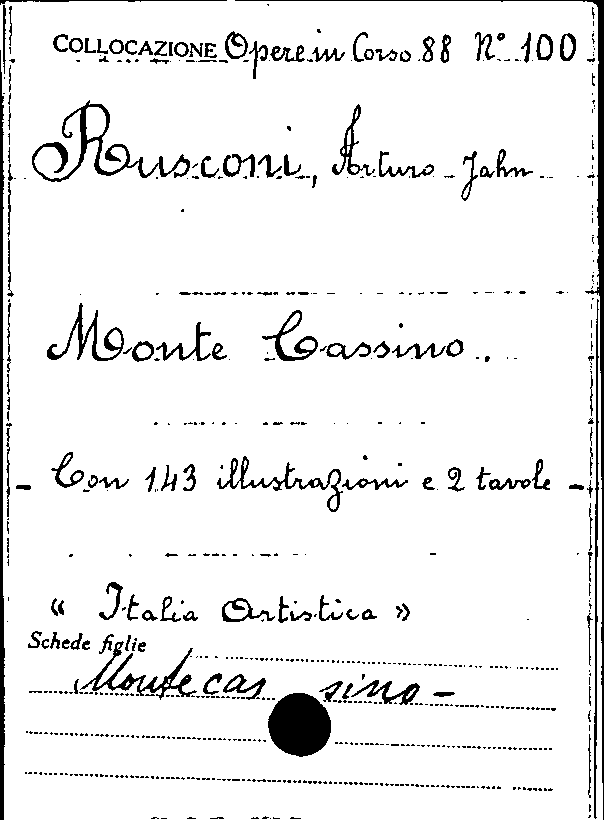 COLLOCAZIONE Opere in Corso 88 N° 100
Rusconi, Arturo - Jahn
Monte Cassino.
- Con 143 illustrazioni e 2 tavole -
« Italia Artistica »
Schede figlie
Montecas sino -